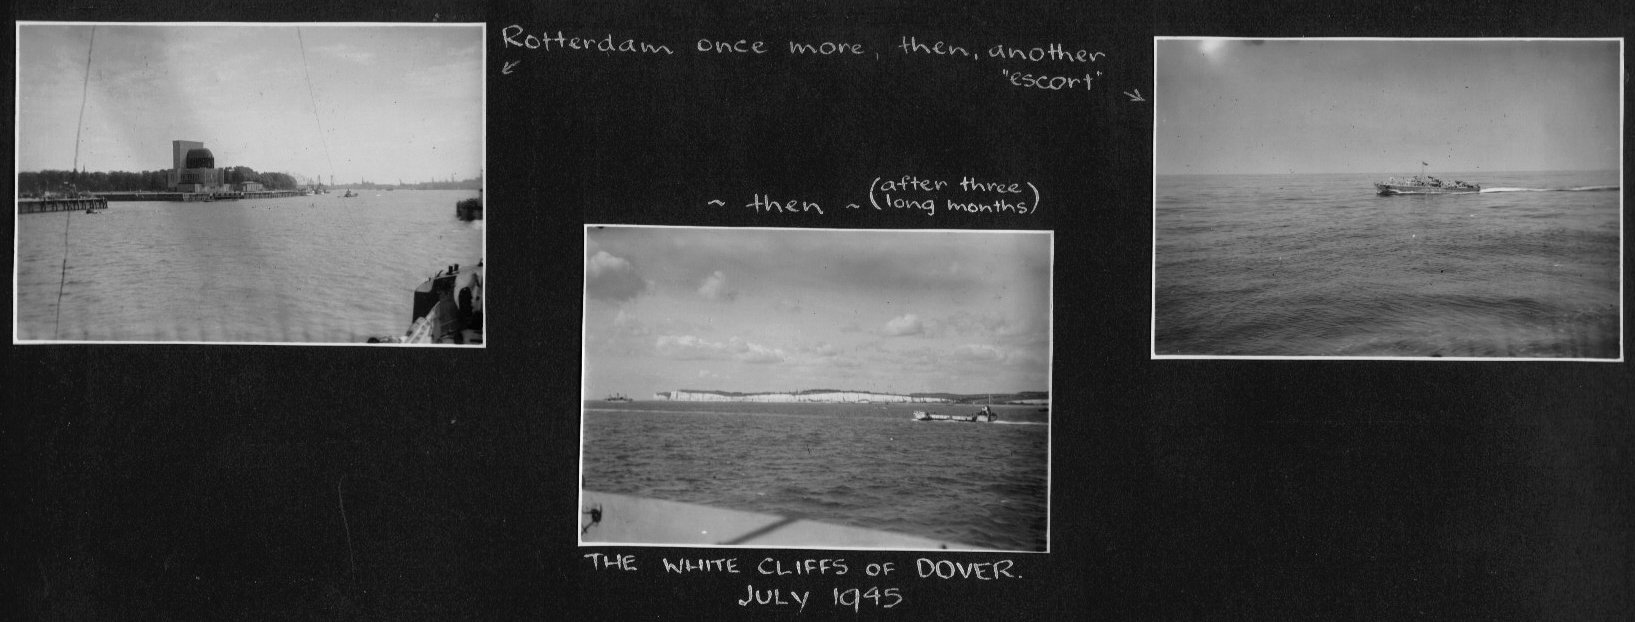 Rotterdam once more, then, another
"escort"
~ then ~ (after three
long months)
THE WHITE CLIFFS OF DOVER.
JULY 1945